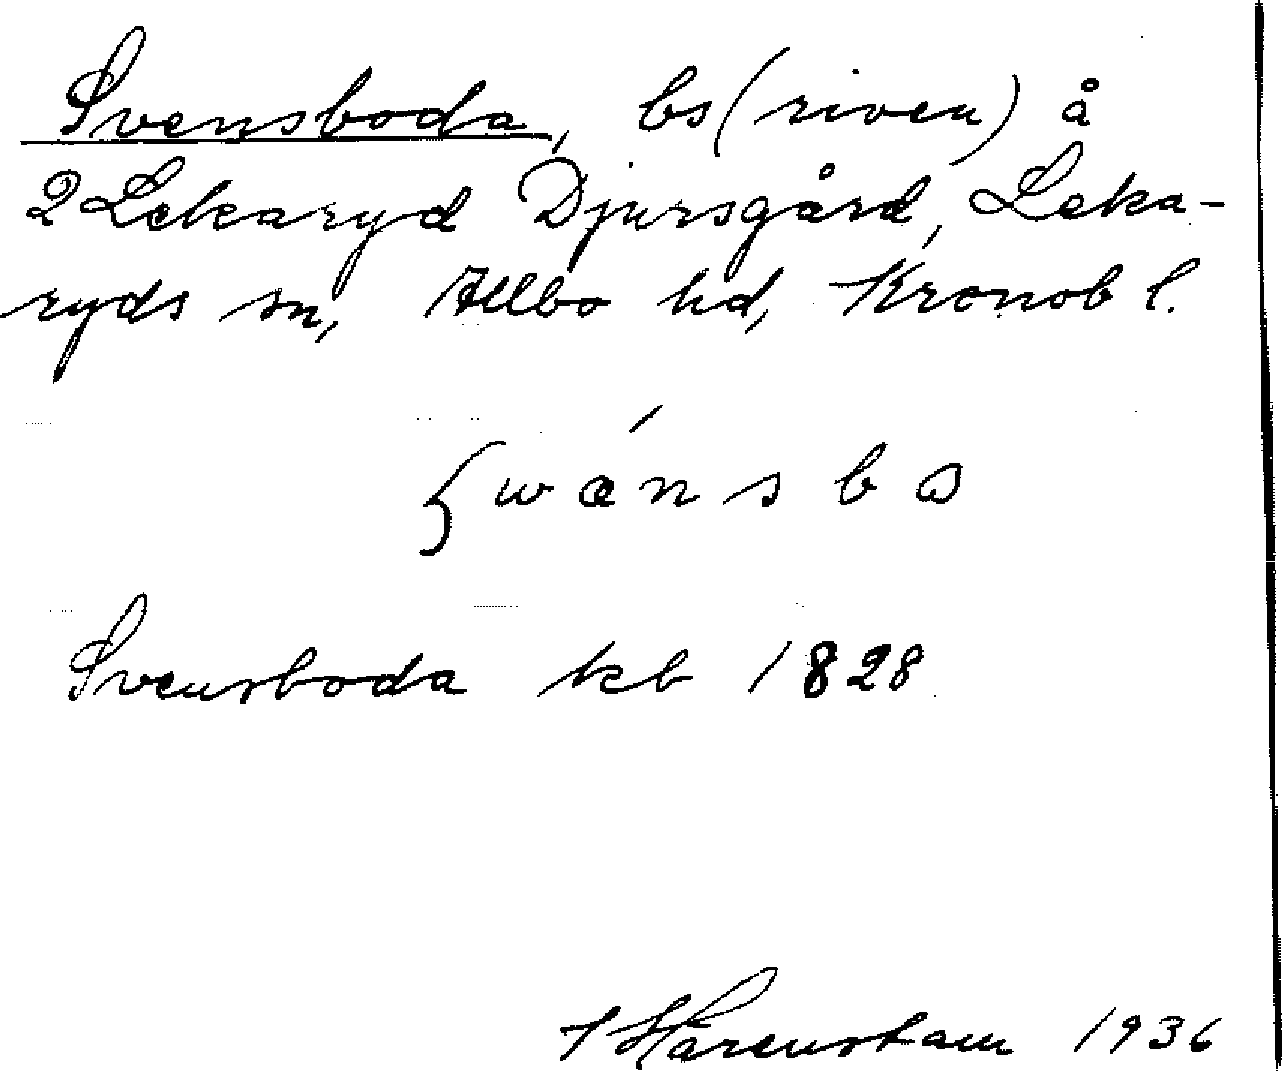 Svensboda, bs (riven) å
2 Lekaryd Djursgård, Leka-
ryds sn, Allbo hd, Kronob l.
swǽnsbo
Svensboda kb 1828
J Hårenstam 1936